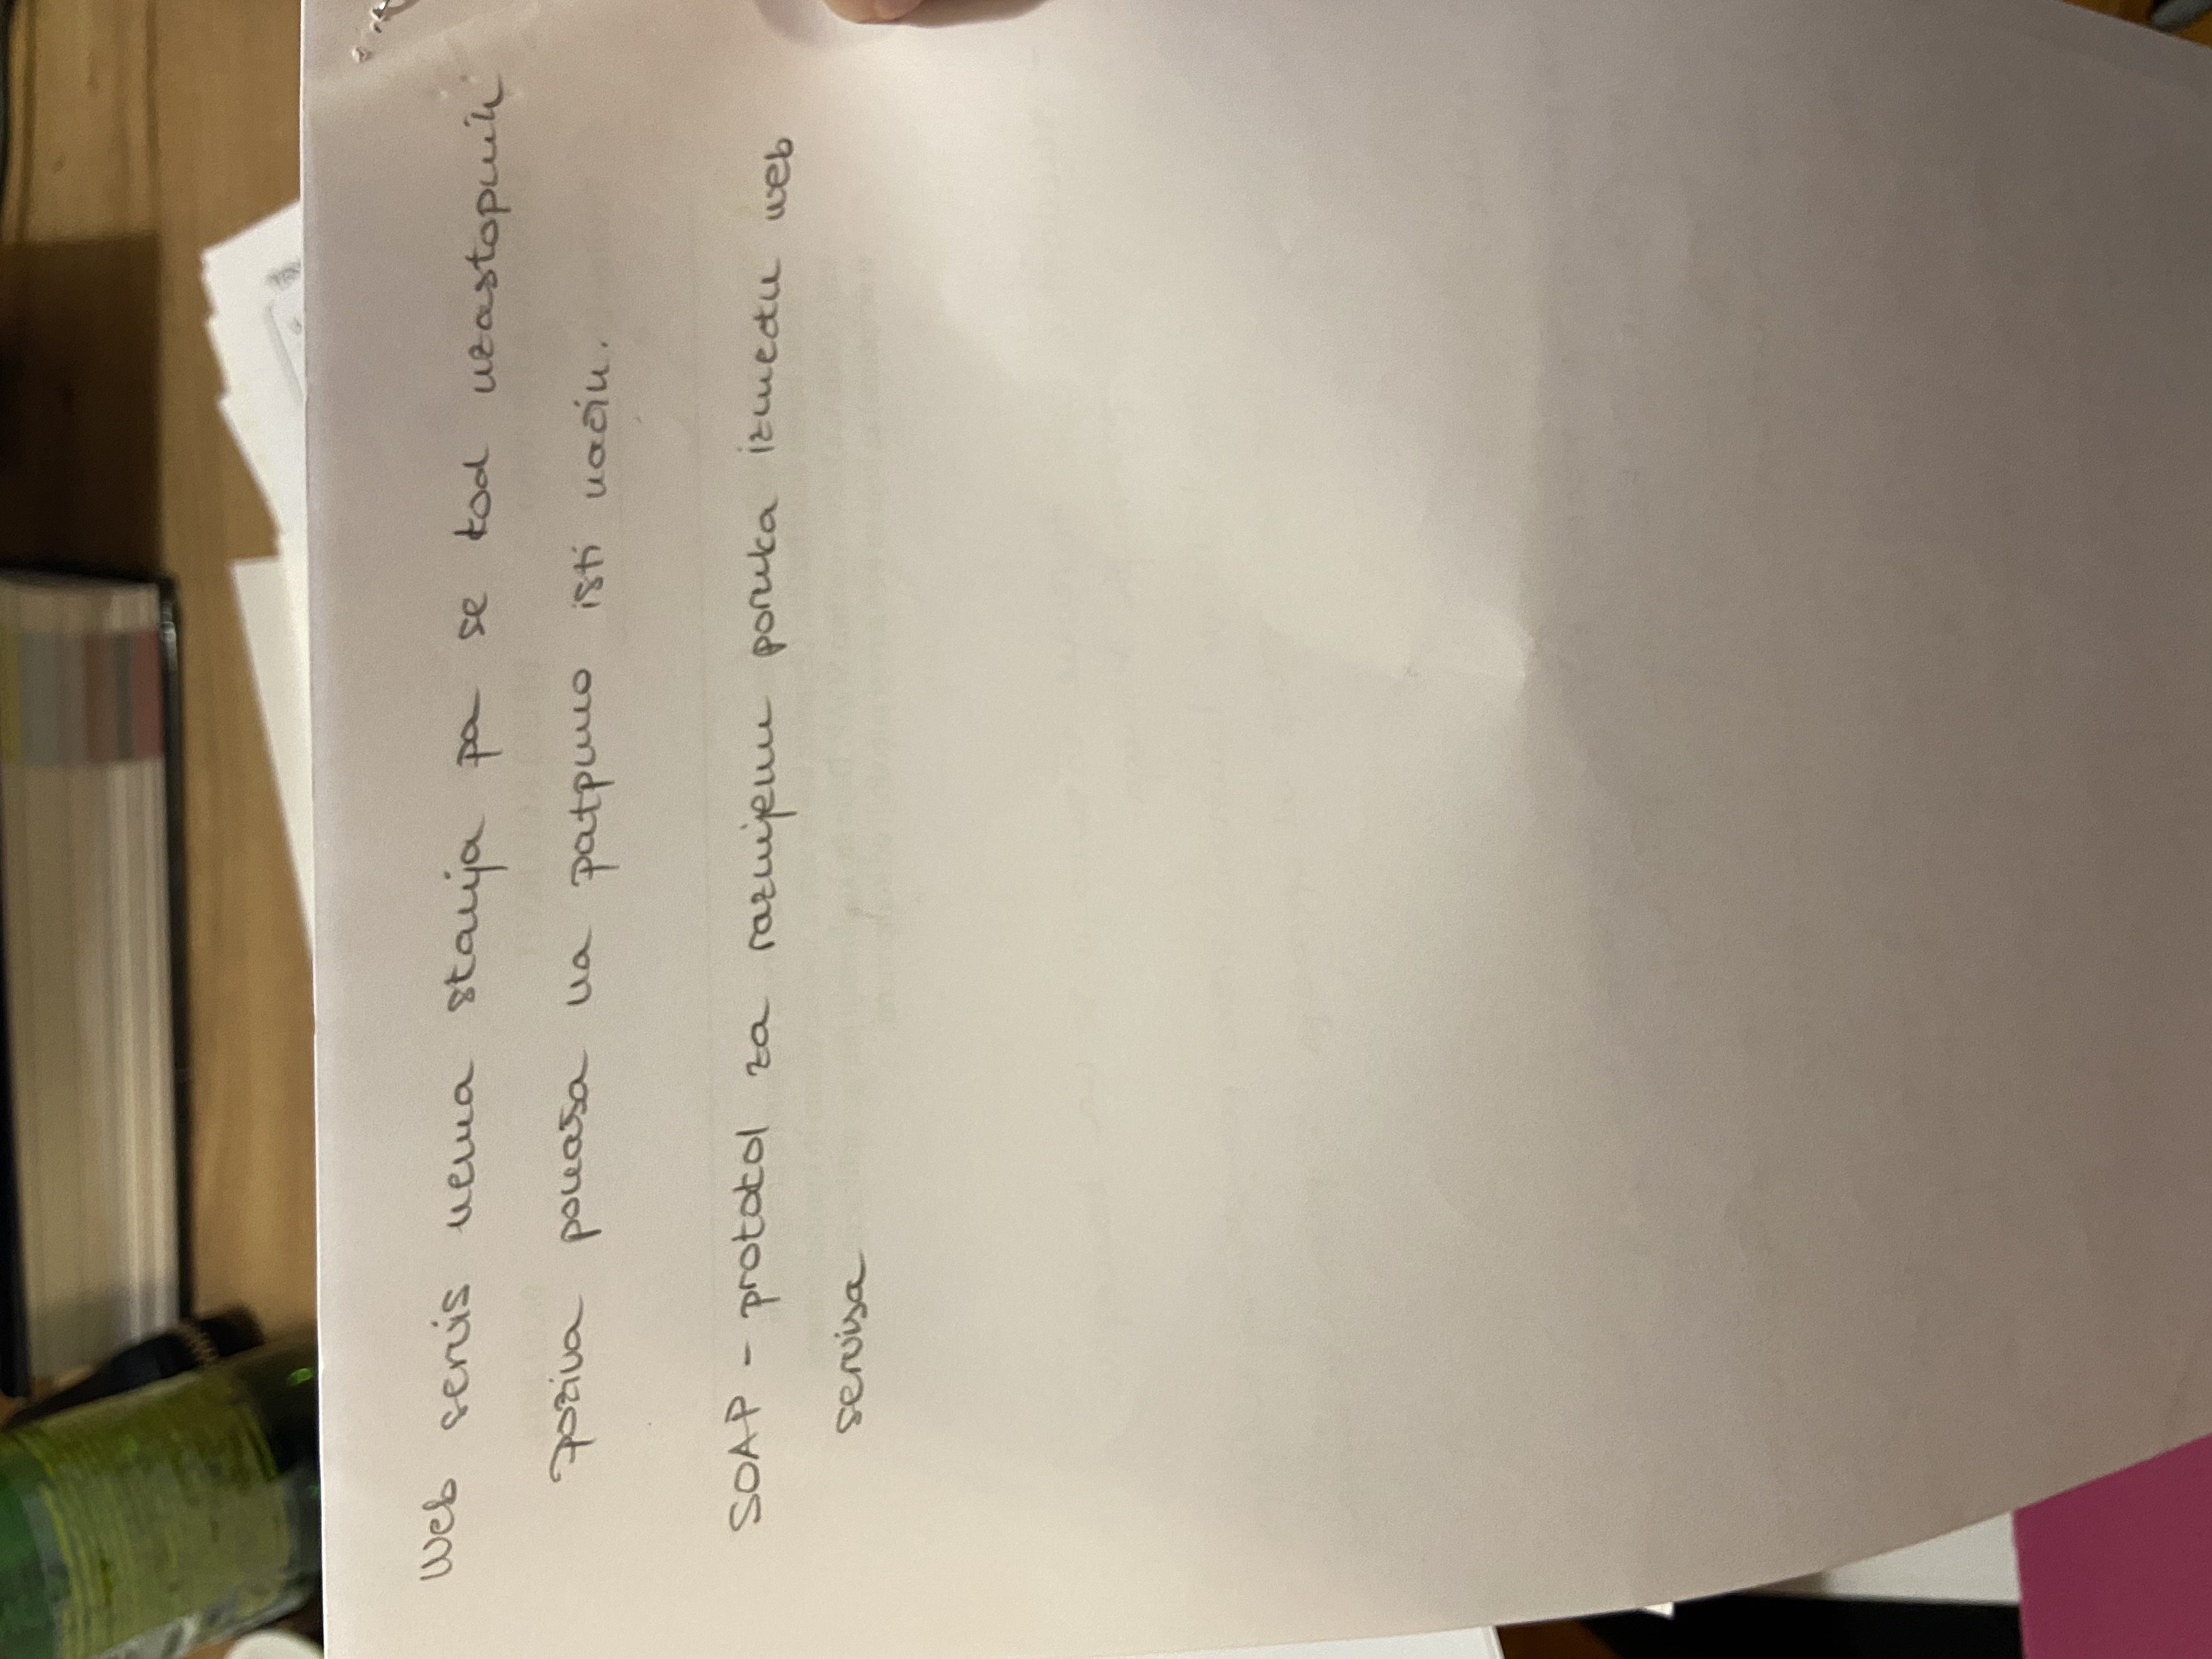 Web servis nema stanja pa se kod uzastopnih
poziva ponaša na patpuno isti način.
SOAP - protokol za razmjenu poruka između web
servisa